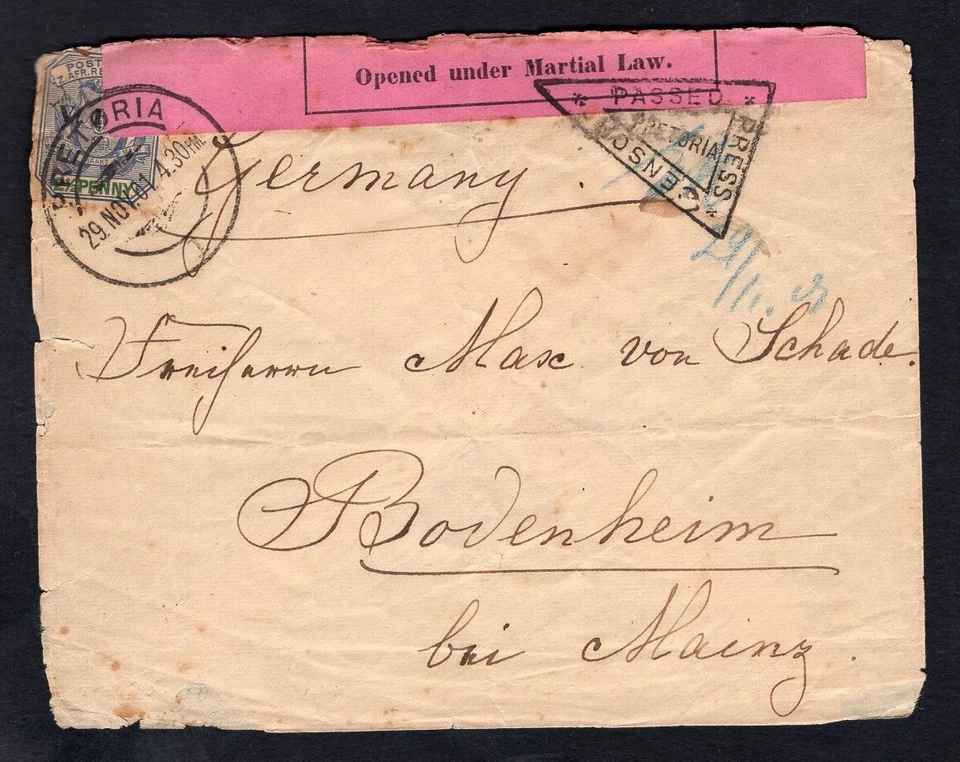 POST
Z. AFR. RE
½ PENNY
PRETORIA
29. NOV. 01. 4.30 PM.
Opened under Martial Law.
PASSED
PRESS
CENSOR
PRETORIA
Germany.
Freiherrn Max von Schade.
Bodenheim
bei Mainz.